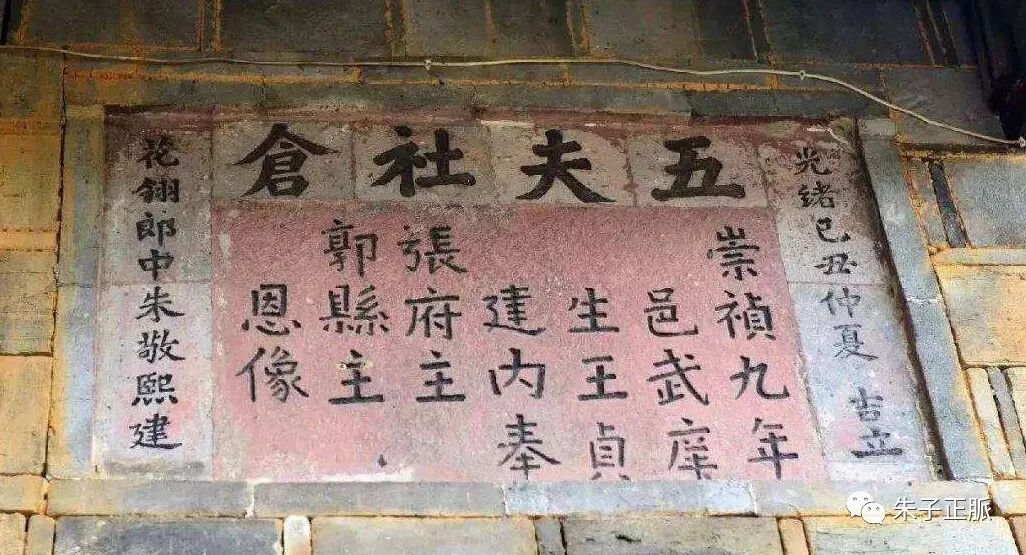 五夫社倉
光緒己丑仲夏 吉立
崇禎九年
邑武庠
生王貞
建内奉
張府主
郭縣主
恩像
花翎郎中朱敬熙建
朱子正脈